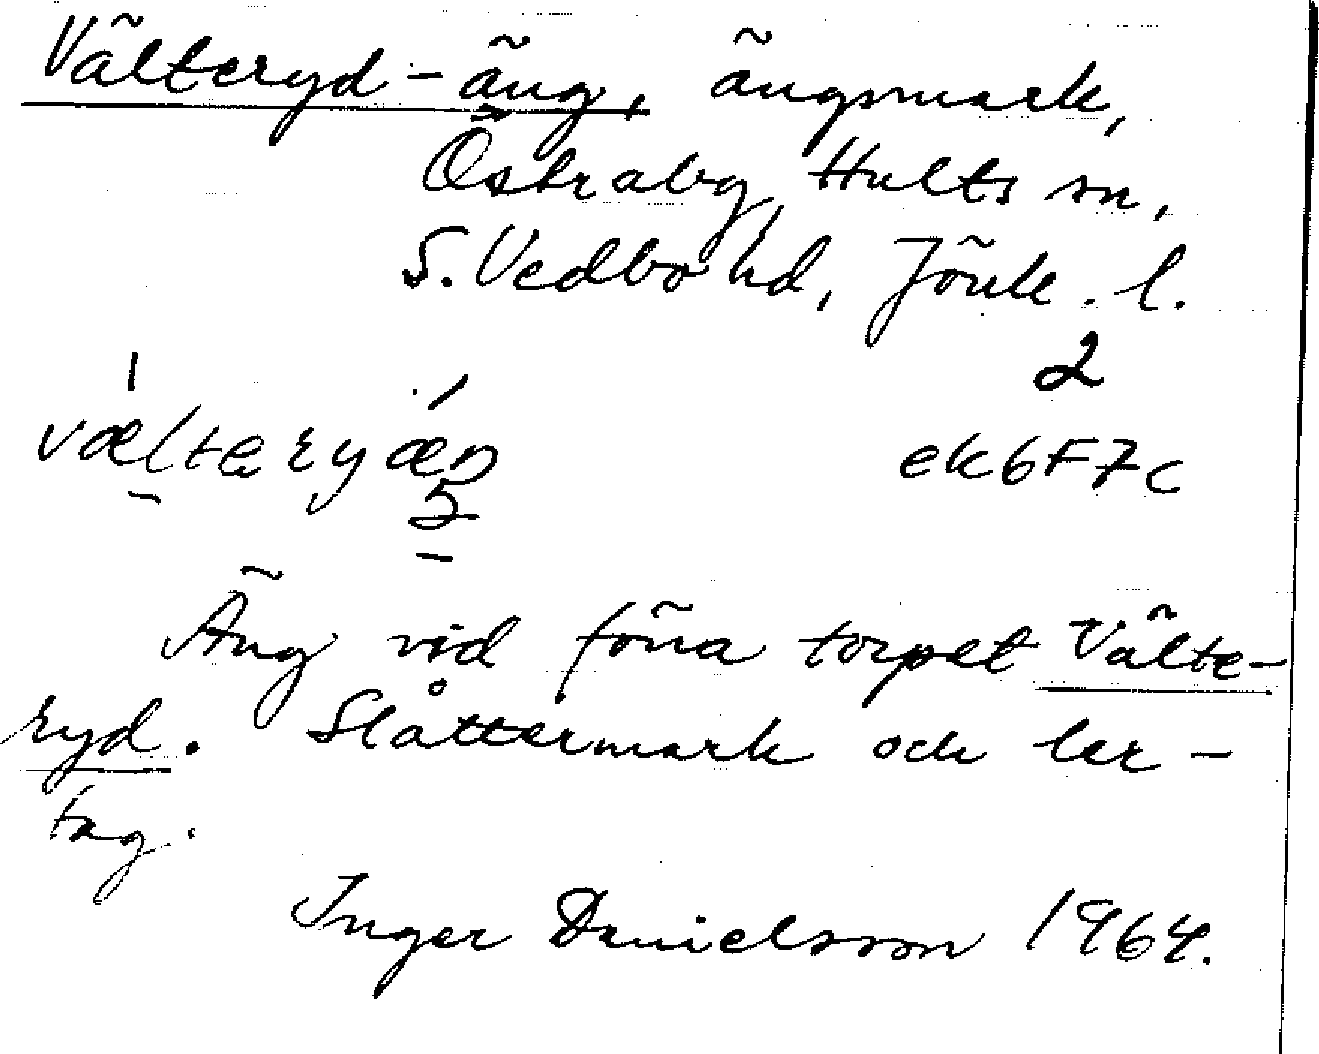 Välteryd-äng, ängsmark,
Östraby, Hults sn,
S. Vedbo hd, Jönk. l.
2
væltəryæŋ ek6F7c
5
Äng vid förra torpet Välte-
ryd. Slåttermark och ler-
tag.
Inger Danielsson 1964.